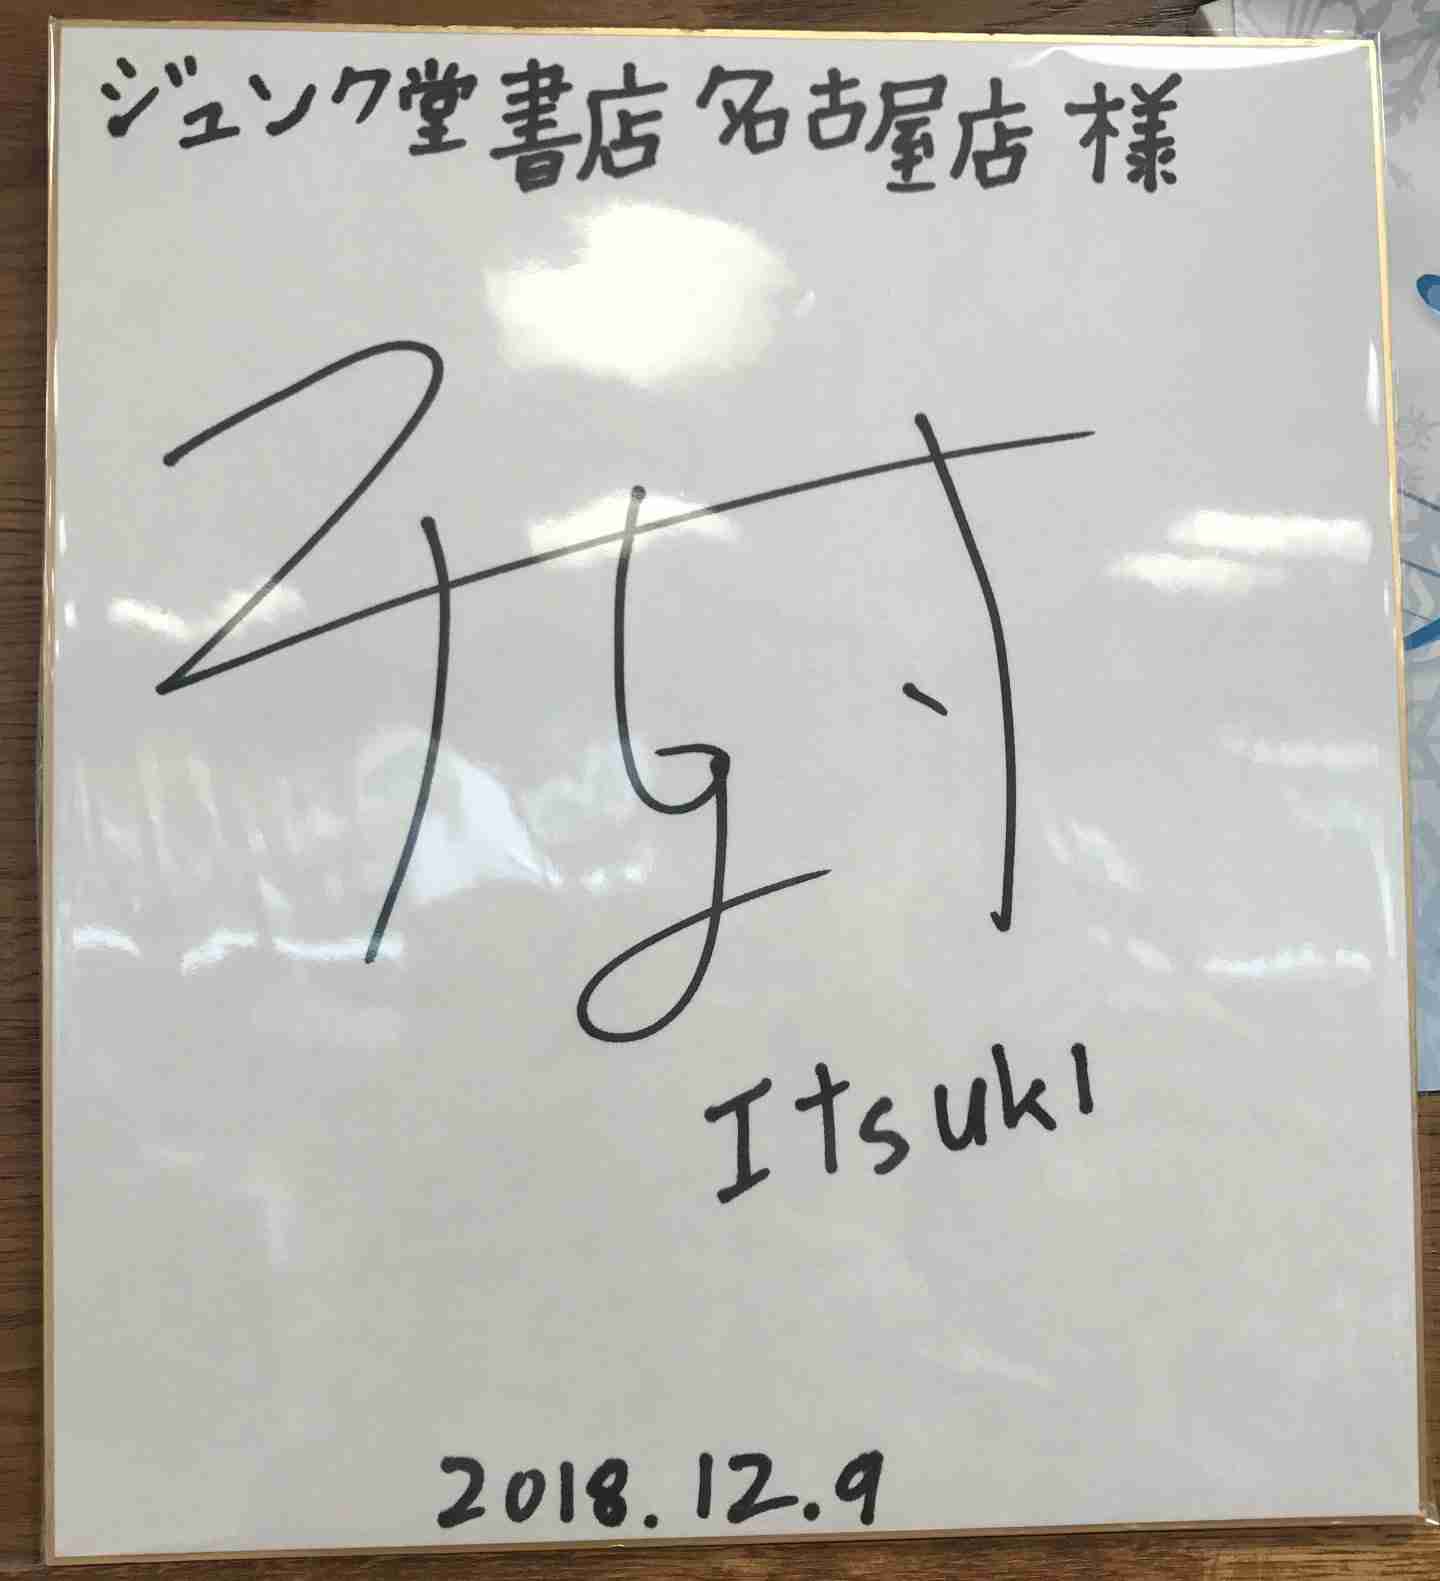 ジュンク堂書店 名古屋店 様
Itsuki
2018.12.9